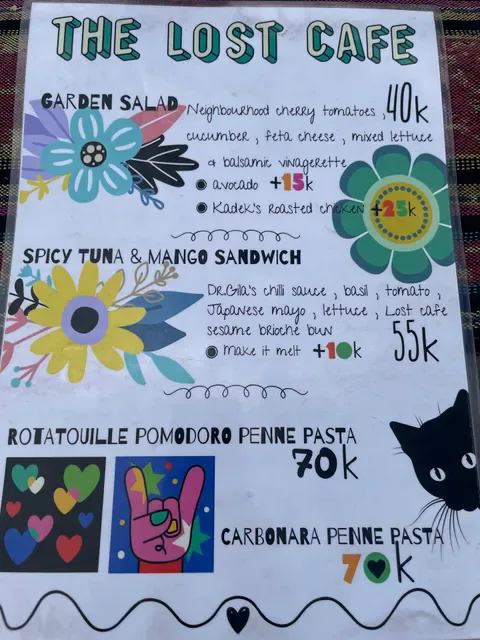 THE LOST CAFE
GARDEN SALAD
Neighbourhood cherry tomatoes , 40k
cucumber , feta cheese , mixed lettuce
& balsamic vinagerette
avocado +15k
Kadek's Roasted chicken +25k
SPICY TUNA & MANGO SANDWICH
Dr.Gila's chilli sauce , basil , tomato ,
Japanese mayo , lettuce , Lost cafe
sesame brioche bun
55k
Make it melt +10k
ROTATOUILLE POMODORO PENNE PASTA
70k
CARBONARA PENNE PASTA
70k